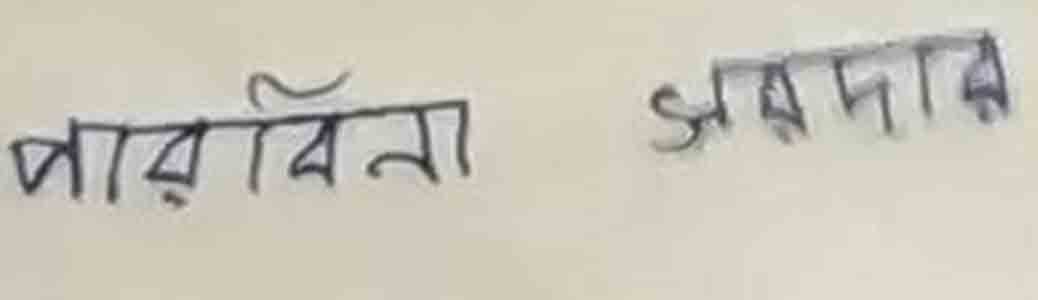 পারবিনা সরদার